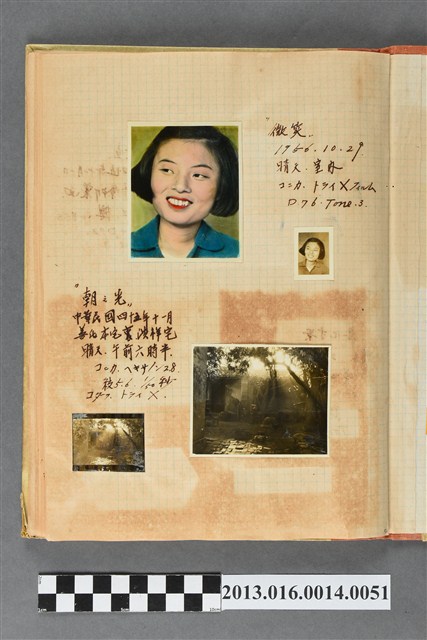 "微笑"
1956.10.29
晴天.室内
コニカ.トライXフィルム
D76.Tone.3.
"朝之光"
中華民國四十五年十一月
晴天.午前六時半.
コニカ.ヘキサノン2.8.
絞5.6.
トライX.
2013.016.0014.0051